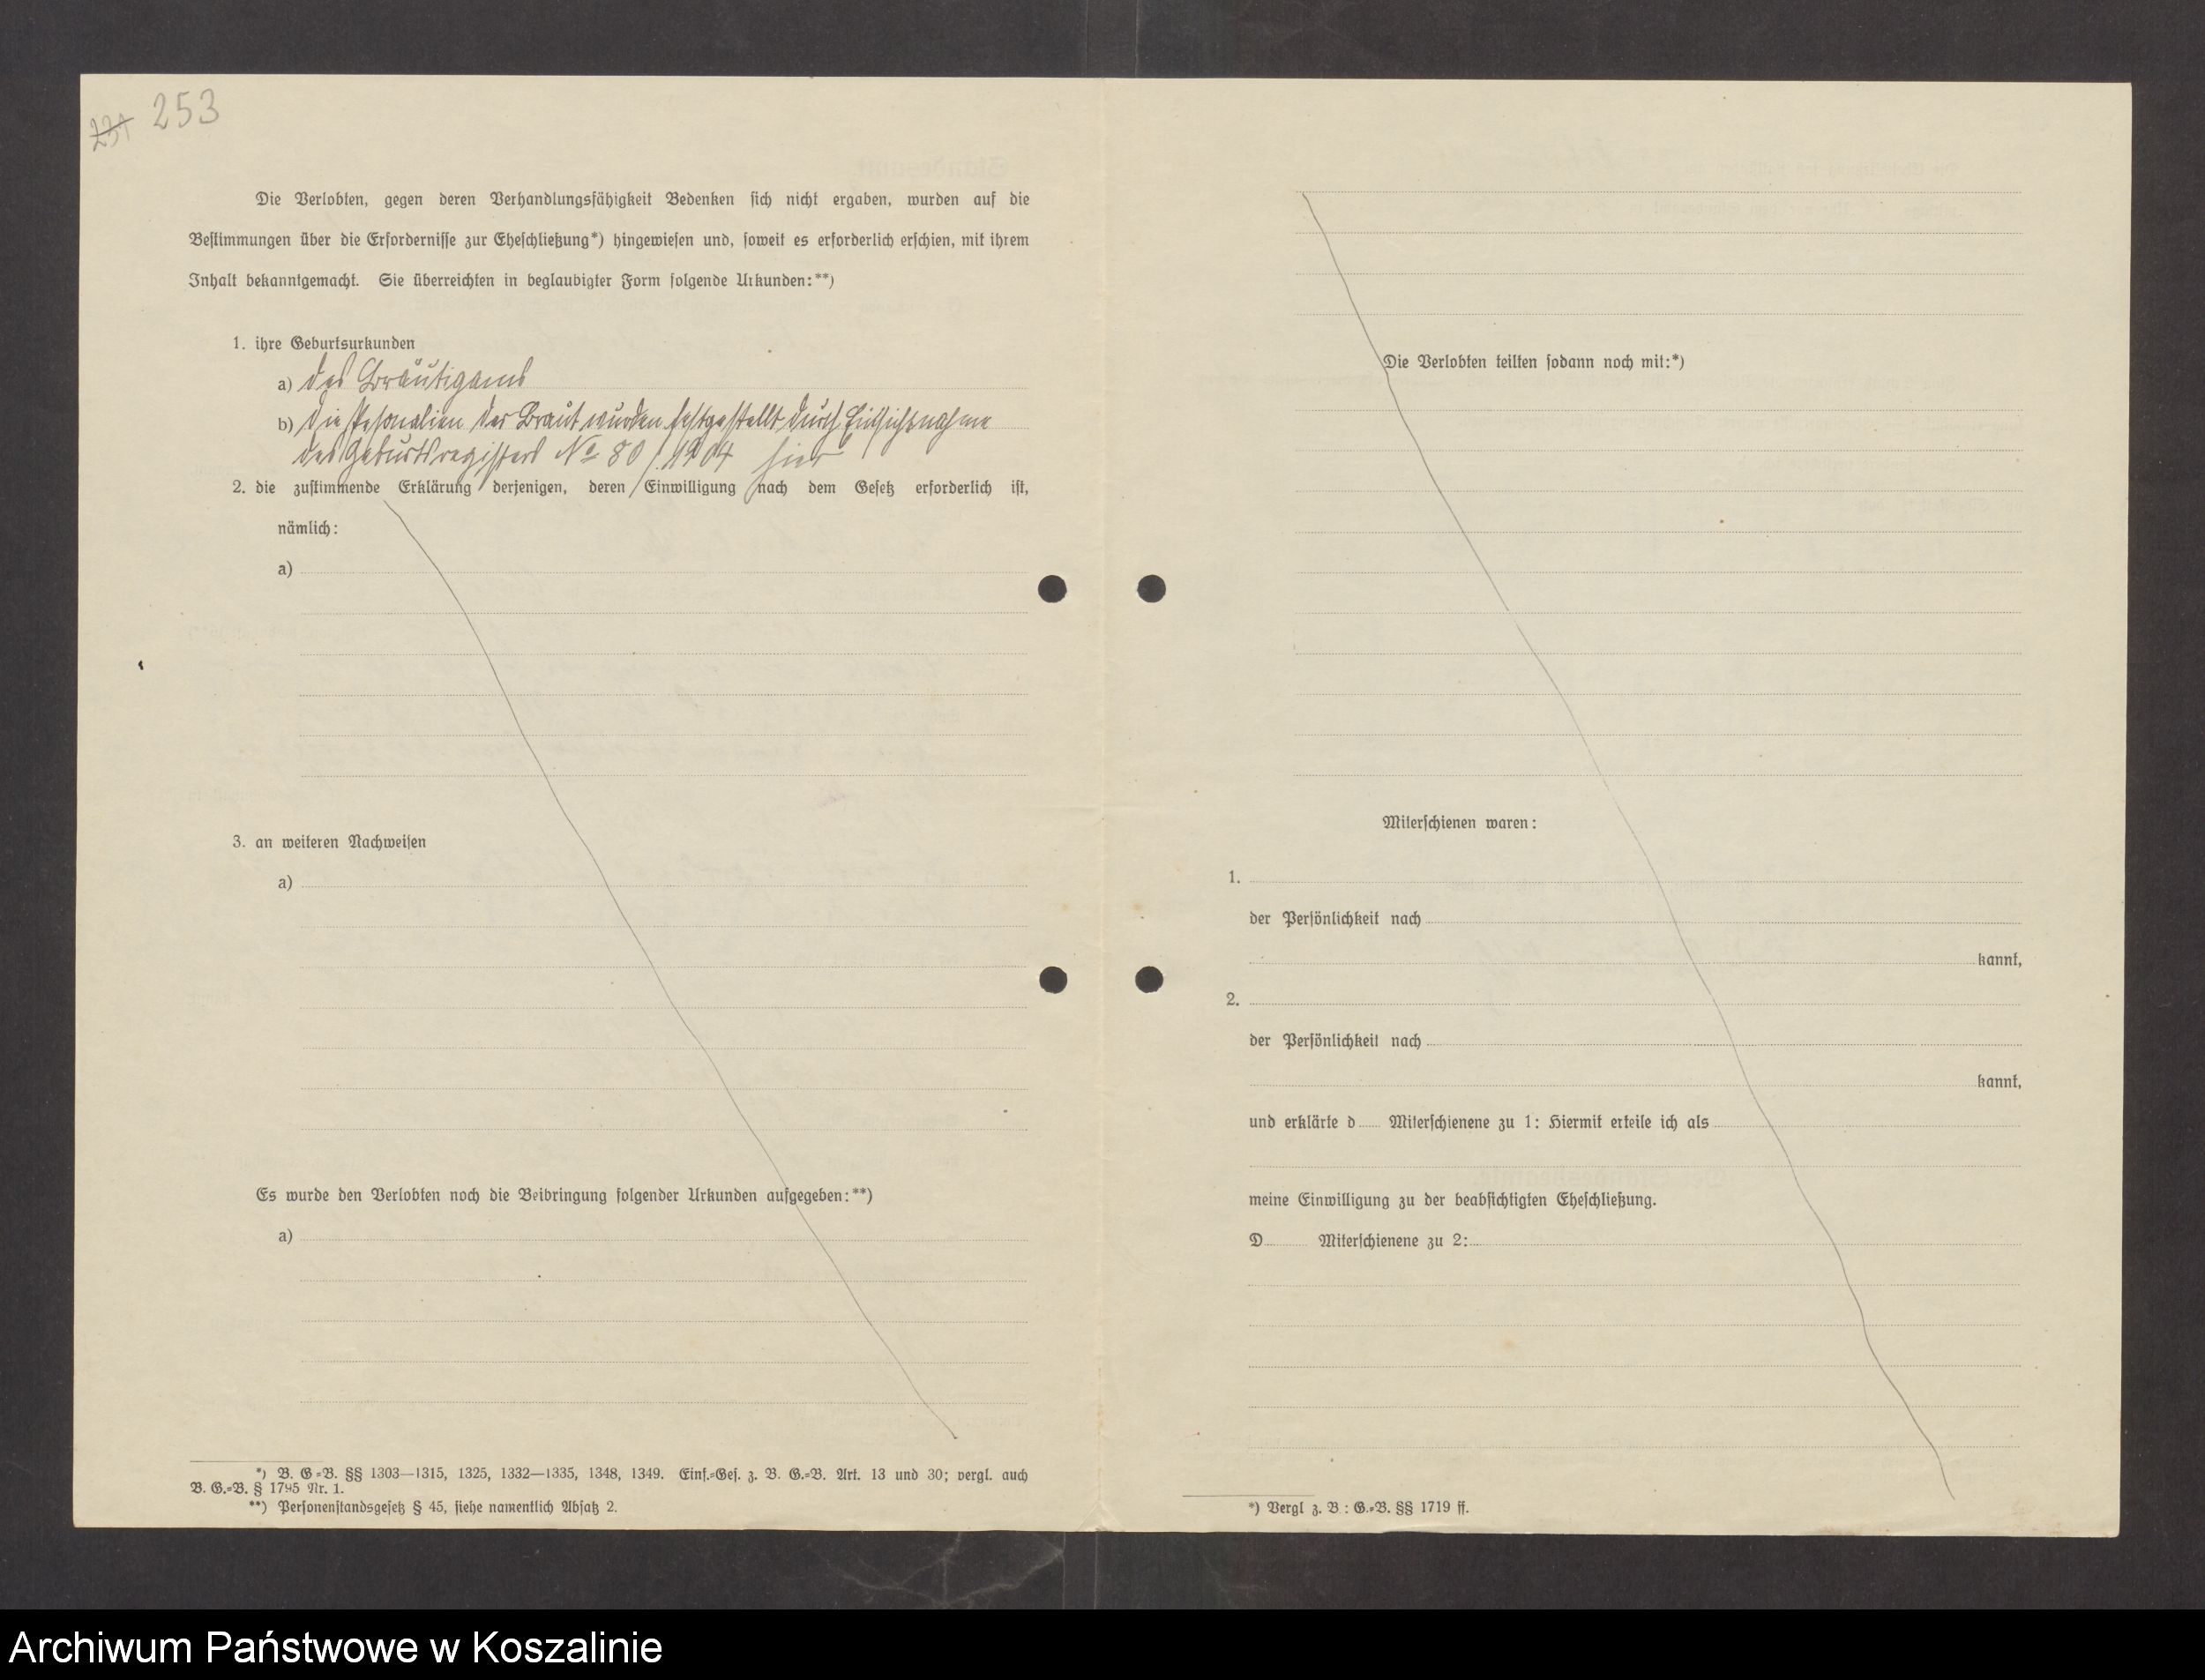 231 253
Die Verlobten, gegen deren Verhandlungsfähigkeit Bedenken sich nicht ergaben, wurden auf die
Bestimmungen über die Erfordernisse zur Eheschließung*) hingewiesen und, soweit es erforderlich erschien, mit ihrem
Inhalt bekanntgemacht. Sie überreichten in beglaubigter Form folgende Urkunden:**)
1. ihre Geburtsurkunden
a) des Bräutigams
b) die Pesonalien der Braut wurden festgestellt durch Einsichtnahme
des Geburtsregisters No 80/1904 hier
2. die zustimmende Erklärung derjenigen, deren Einwilligung nach dem Gesetz erforderlich ist,
nämlich:
a)
3. an weiteren Nachweisen
a)
Es wurde den Verlobten noch die Beibringung folgender Urkunden aufgegeben:**)
a)
*) B. G.=B. §§ 1303—1315, 1325, 1332—1335, 1348, 1349. Einf.=Ges. z. B. G.=B. Art. 13 und 30; vergl. auch
B. G.=B. § 1795 Nr. 1.
**) Personenstandsgesetz § 45, siehe namentlich Absatz 2.
Die Verlobten teilten sodann noch mit:*)
Miterschienen waren:
1.
der Persönlichkeit nach
kannt,
2.
der Persönlichkeit nach
kannt,
und erklärte d Miterschienene zu 1: Hiermit erteile ich als
meine Einwilligung zu der beabsichtigten Eheschließung.
D Miterschienene zu 2:
*) Vergl z. B : G.=B. §§ 1719 ff.
Archiwum Państwowe w Koszalinie